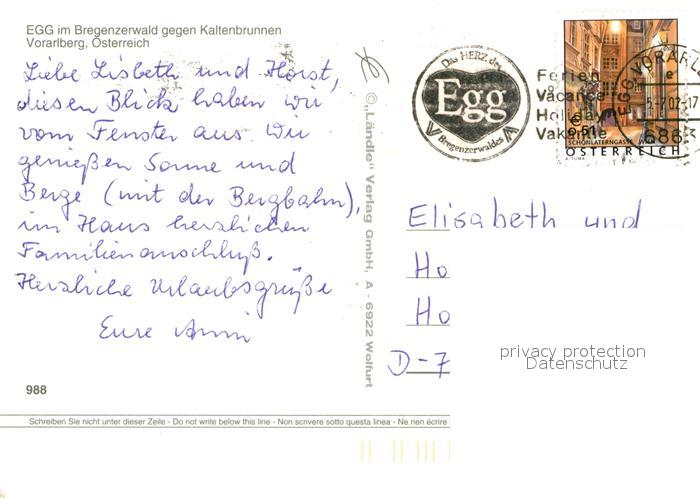 EGG im Bregenzerwald gegen Kaltenbrunnen
Vorarlberg, Österreich
Liebe Lisbeth und Horst,
diesen Blick haben wir
vom Fenster aus. Wir
genießen Sonne und
Berge (mit der Bergbahn),
im Haus herzlichen
Familienanschluß.
Herzliche Urlaubsgrüße
Eure Anni
988
© „Ländle" Verlag GmbH, A - 6922 Wolfurt
Das HERZ des
Egg
Bregenzerwaldes
Ferien
Vacance
Holiday
Vakantie
EGG, VORARLB
5.-7.02-17
686
0,51
SCHÖNLATERNGASSE, WIEN
ÖSTERREICH
A. TUMA
Elisabeth und
Ho
Ho
D-7
privacy protection
Datenschutz
Schreiben Sie nicht unter dieser Zeile - Do not write below this line - Non scrivere sotto questa linea - Ne rien écrire